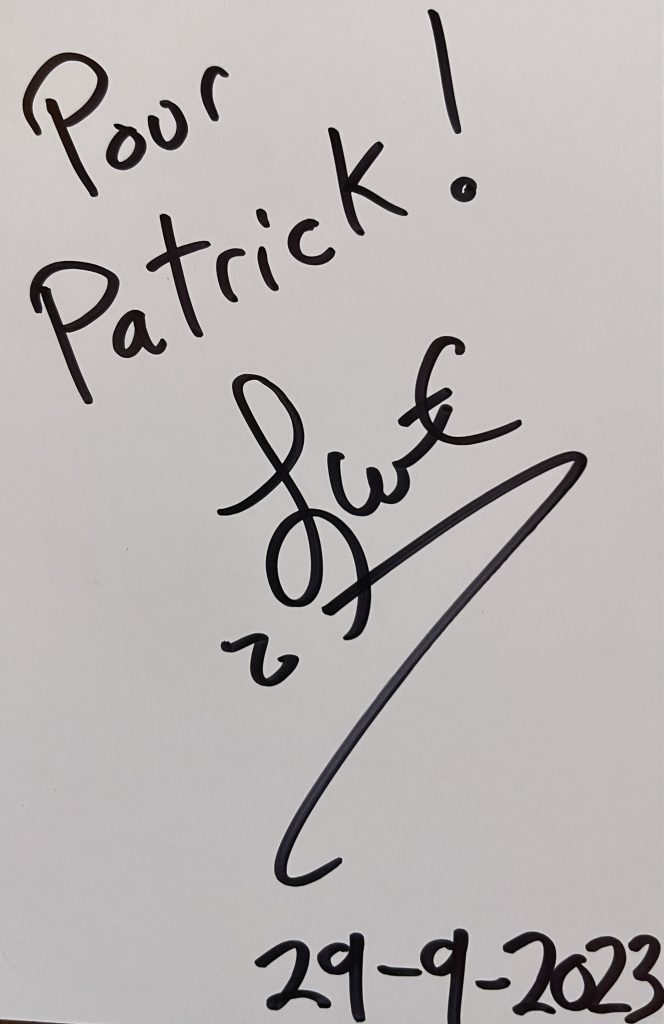 Pour
Patrick!
29-9-2023